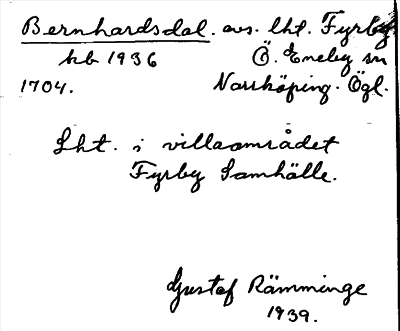 Bernhardsdal. avs. lht. Fyrby
hb 1936 Ö. Eneby sn
1704. Norrköping. Ögl.
Lht. i villaområdet
Fyrby Samhälle.
Gustaf Rämminge
1939.